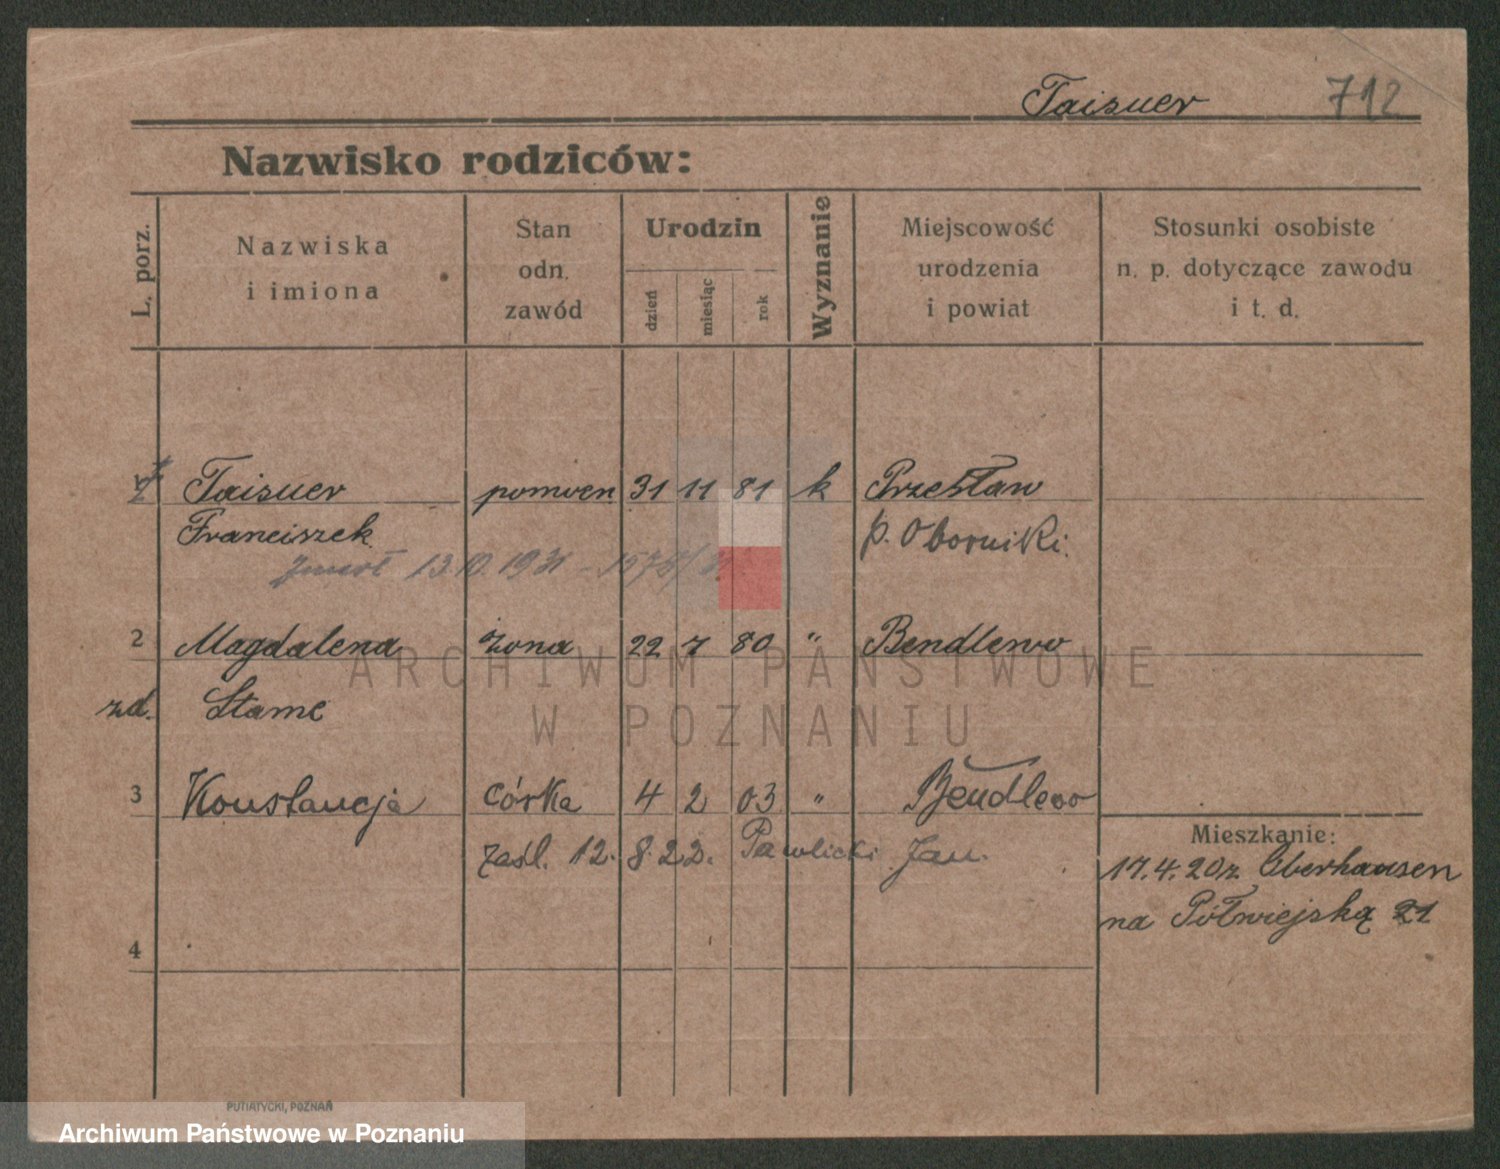 Taisner 712
Nazwisko rodziców:
L. porz.
Nazwiska
i imiona
Stan
odn.
zawód
Urodzin
dzień
miesiąc
rok
Wyznanie
Miejscowość
urodzenia
i powiat
Stosunki osobiste
n. p. dotyczące zawodu
i t. d.
Taisner pomoen 31 11 81 k Przesław
Franciszek p. Oborniki.
Zmarł 13.10.1931
2 Magdalena żona 22 7 80 " Bendlewo
zd. Stame
3 Konstancja córka 4 2 03 " Bendlewo
Mieszkanie:
zaśl. 12. 8. 22. Pawlicki Jan.
17.4.20 z Oberhausen
na Półwiejską 21
4
ARCHIWUM PAŃSTWOWE
W POZNANIU
PUTIATYCKI, POZNAŃ
Archiwum Państwowe w Poznaniu